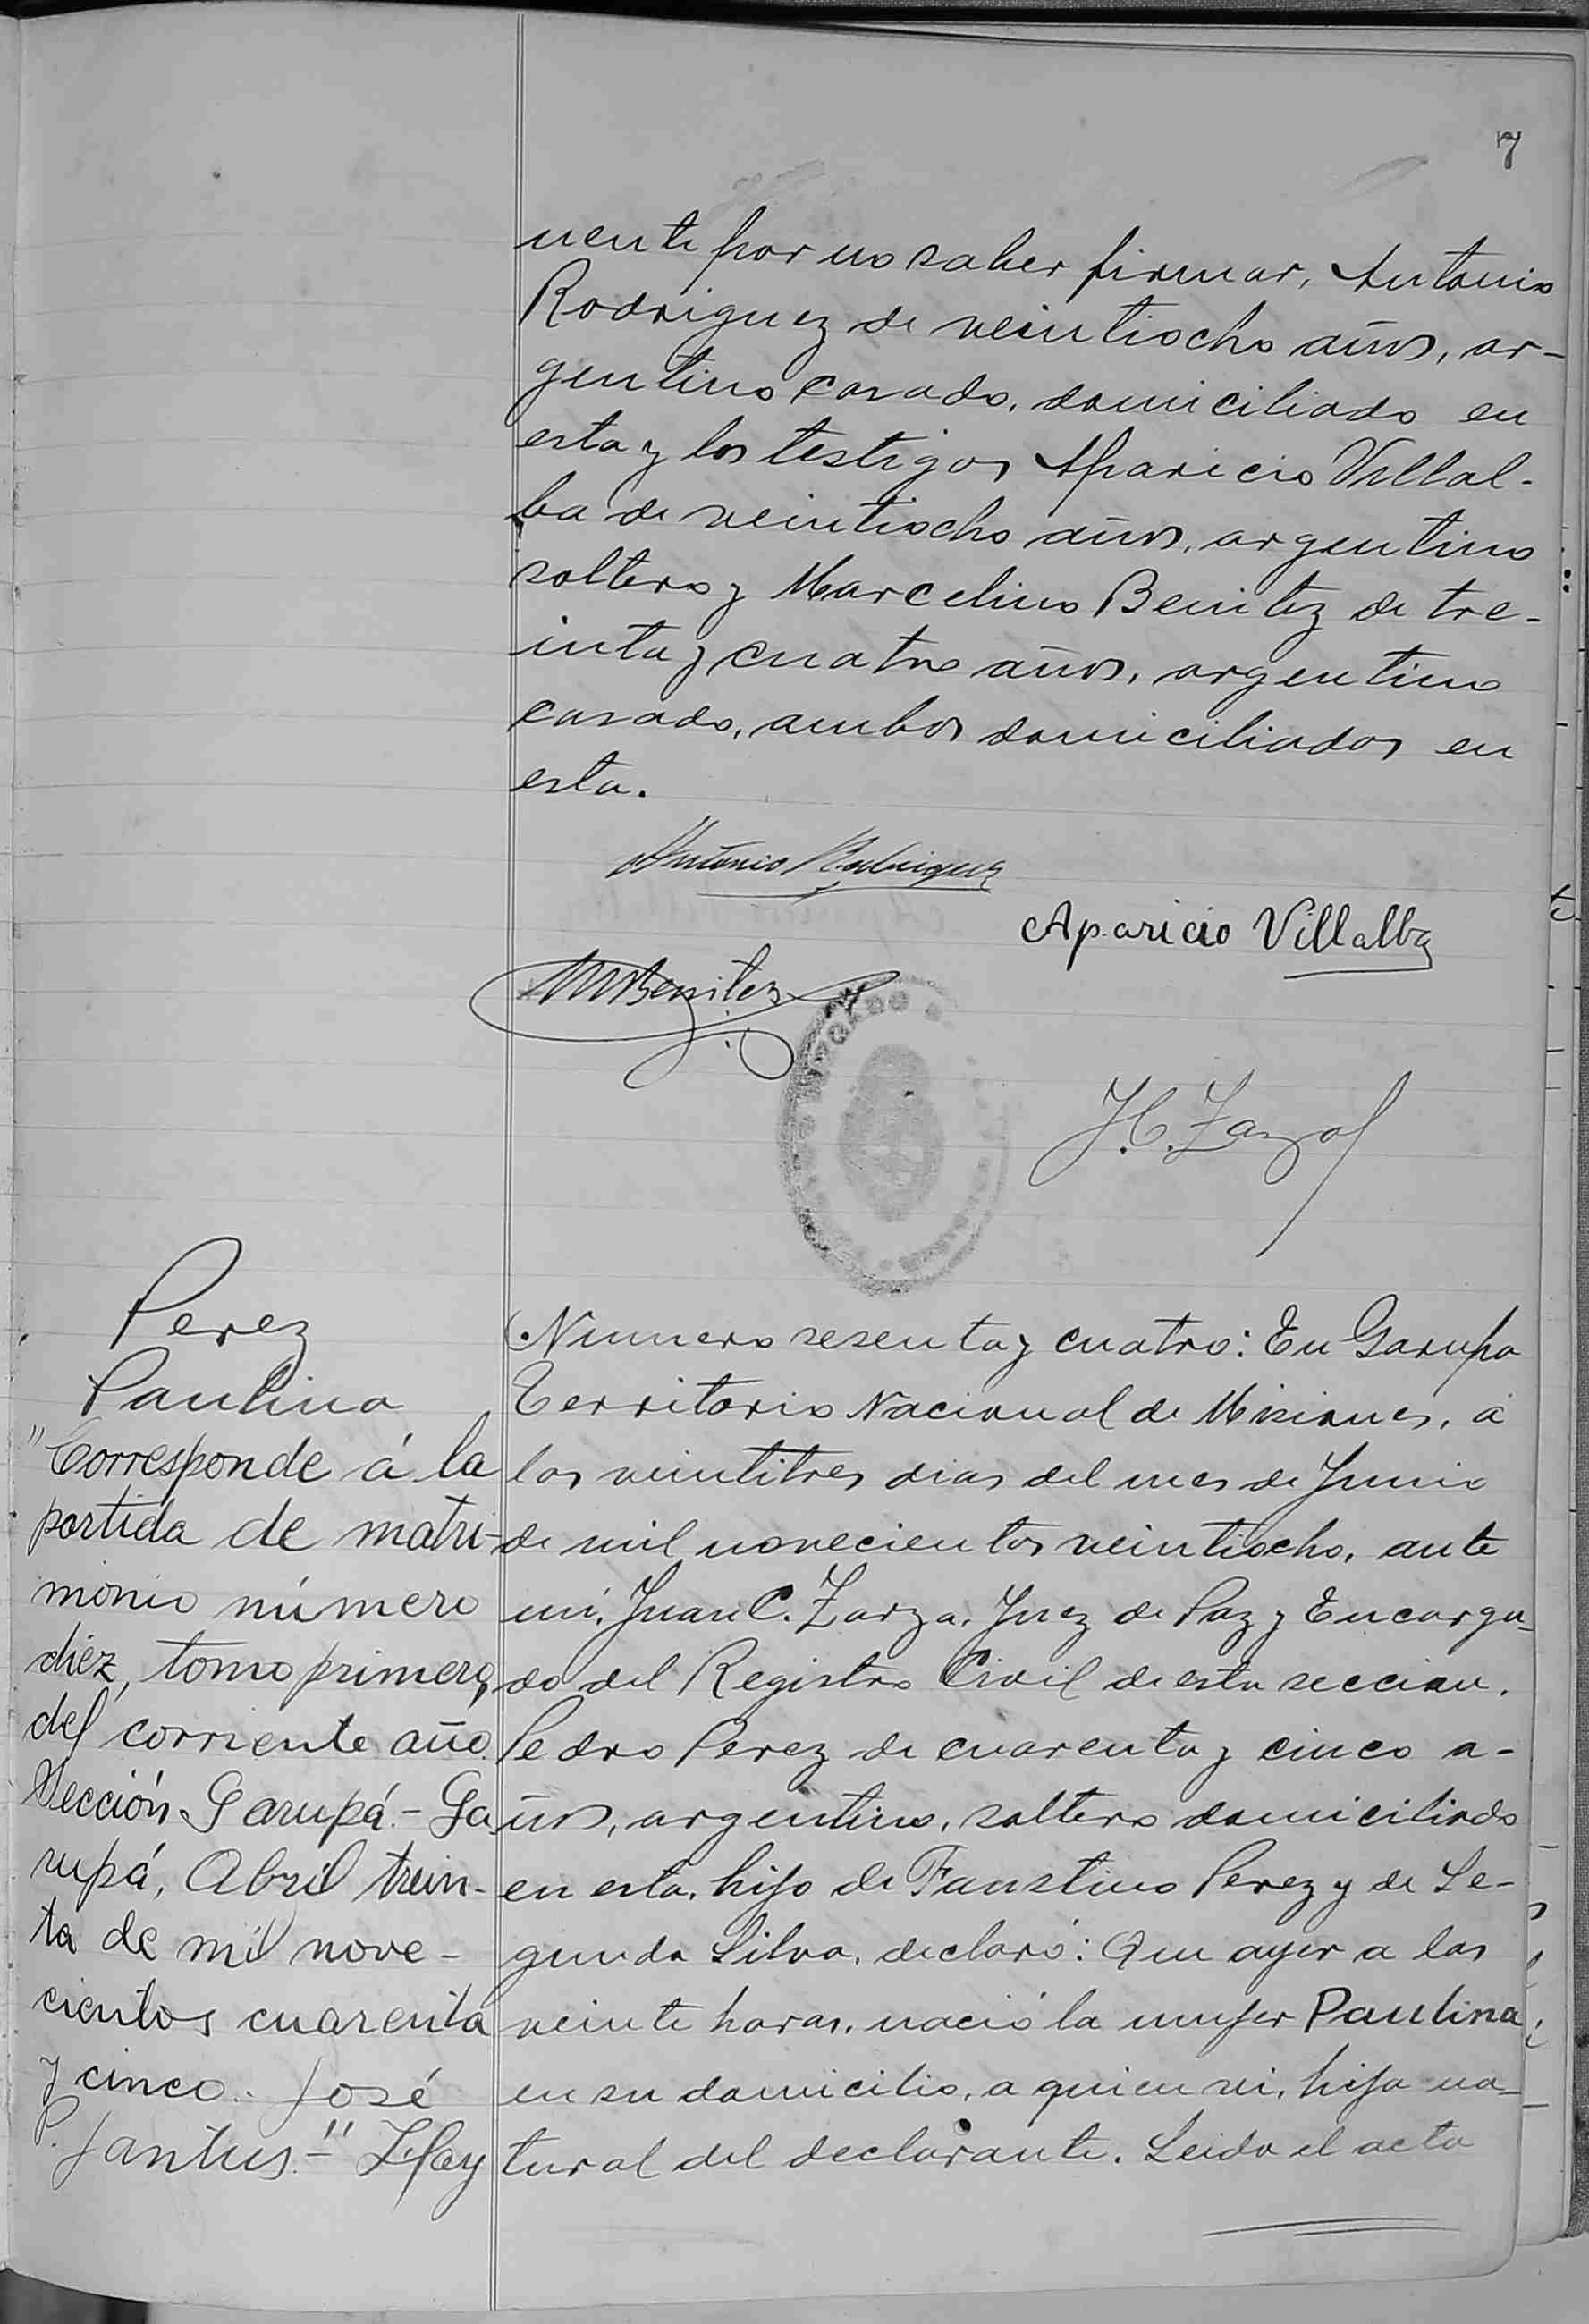 7
nente por no saber firmar, Antonio
Rodriguez de veintiocho años, ar-
gentino casado, domiciliado en
esta y los testigos Aparicio Villal-
ba de veintiocho años, argentino
soltero y Marcelino Benitez de tre-
inta y cuatro años, argentino
casado, ambos domiciliados en
esta.
Antonio Rodriguez
Aparicio Villalba
M Benitez
J. C. Zarza
Perez
Paulina
"Corresponde á la
partida de matri-
monio número
diez, tomo primero,
del corriente año.
Sección Garupá.- Ga
rupá, Abril trein-
ta de mil nove-
cientos cuarenta
y cinco. José
P. Santus.-"
Numero sesenta y cuatro: En Garupa
Territorio Nacional de Misiones, á
los veintitres dias del mes de Junio
de mil novecientos veintiocho, ante
mi, Juan C. Zarza, Juez de Paz y Encarga-
do del Registro Civil de esta seccion.
Pedro Perez de cuarenta y cinco a-
ños, argentino, soltero domiciliado
en esta, hijo de Faustino Perez y de Se-
gunda Silva, declaró: Que ayer a las
veinte horas, nació la mujer Paulina
en su domicilio, a quien vi, hija na-
tural del declarante. Leida el acta